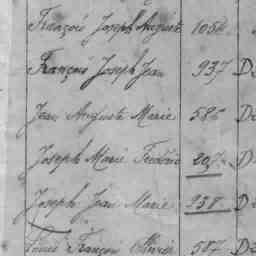 François Joseph Auguste 1054
François Joseph Jean 937 D
Jean Auguste Marie 585 D
Joseph Marie Frédéric 207
Joseph Jean Marie 958 D
Louis François Olivier 587 D